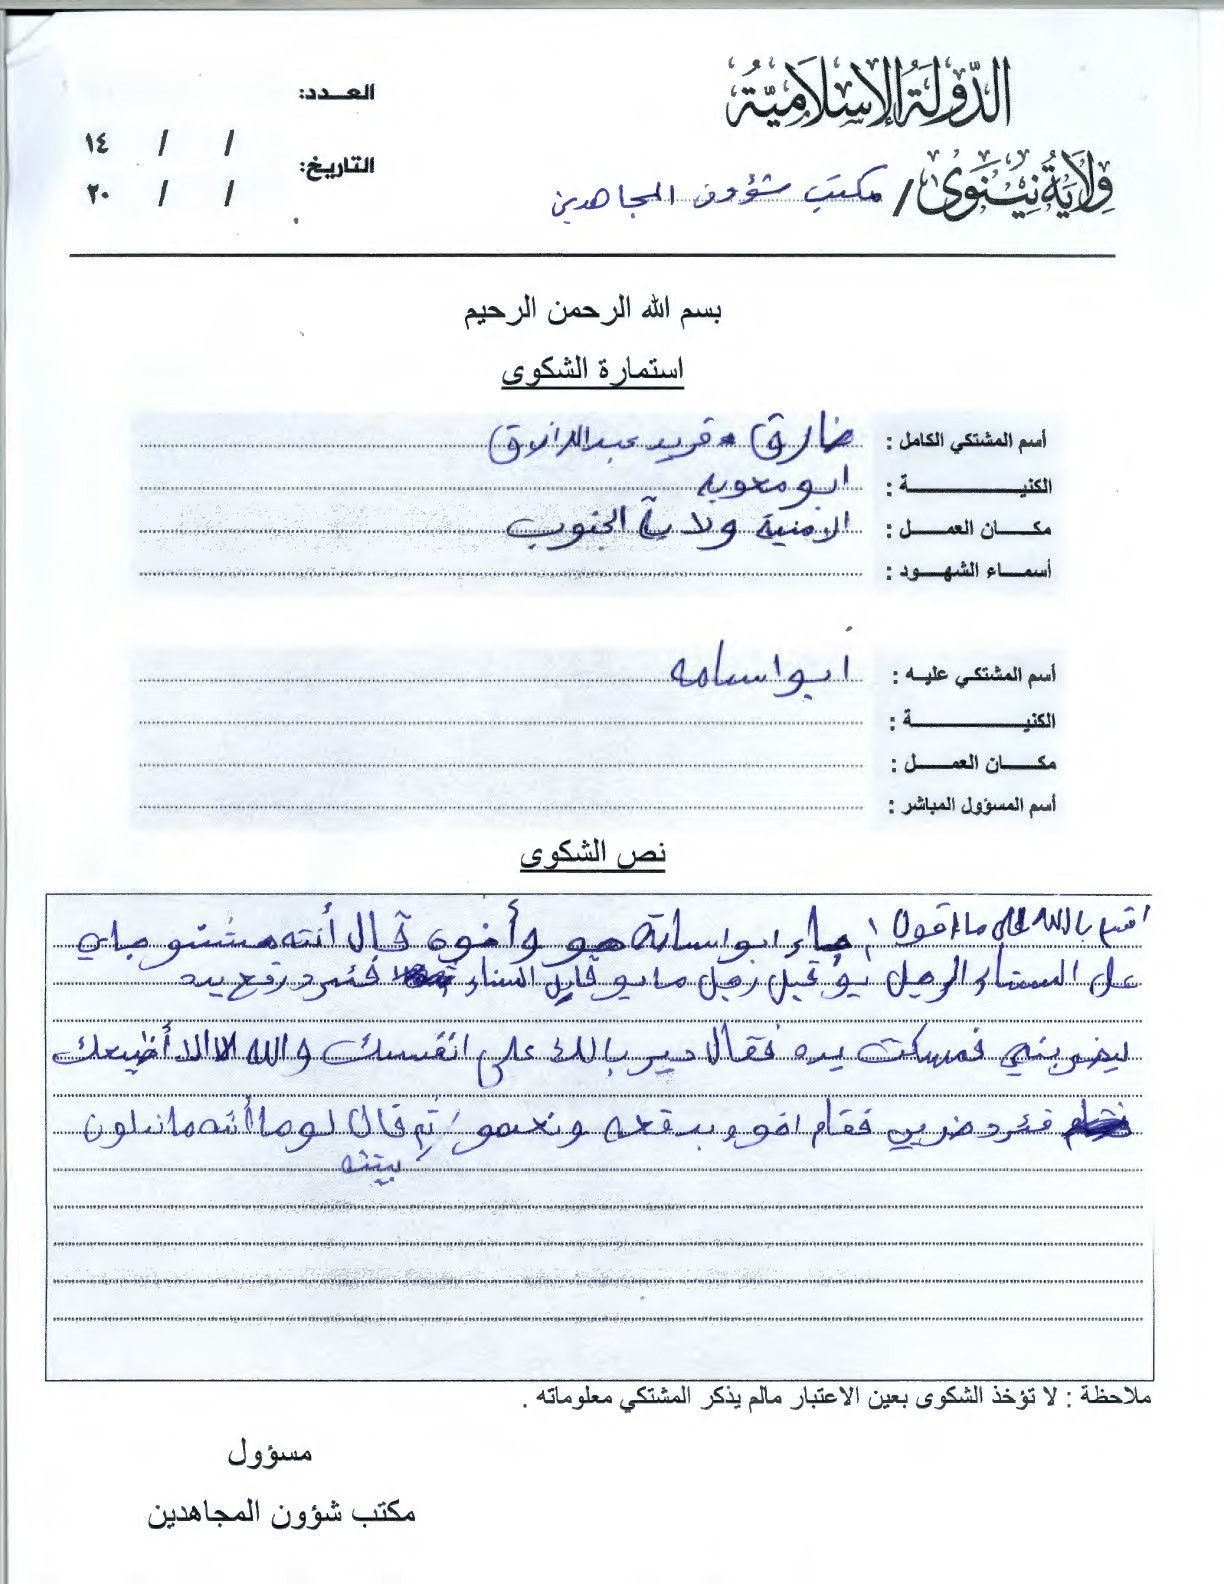 الدولة الإسلامية
ولاية نينوى / مكتب شؤون المجاهدين
العـــدد:
التاريخ: / / ١٤
/ / ٢٠
بسم الله الرحمن الرحيم
استمارة الشكوى
أسم المشتكي الكامل : ضارق فريد عبدالرازق
الكنيـــــــــة : ابو معويه
مكـــان العمـــل : الامنية ولاية الجنوب
أسمـــاء الشهـــود :
أسم المشتكي عليـه : ابو اسامه
الكنيـــــــــة :
مكـــان العمـــل :
أسم المسؤول المباشر :
نص الشكوى
اقسم بالله على ما اقول جاء ابو اسامة هو وأخوه قال أنته مشتو جاي
على الستاء الرجيل يو قبل رجل ما يو قابل الستاء فمرد رفع يده
ليضربني فمسكت يده فقال دير بالك على انفسك والله الا أضيعك
فمرد ضربني فقام اخوه ثم قال لو ما أنته ما
بيتنه
ملاحظة : لا تؤخذ الشكوى بعين الاعتبار مالم يذكر المشتكي معلوماته .
مسؤول
مكتب شؤون المجاهدين